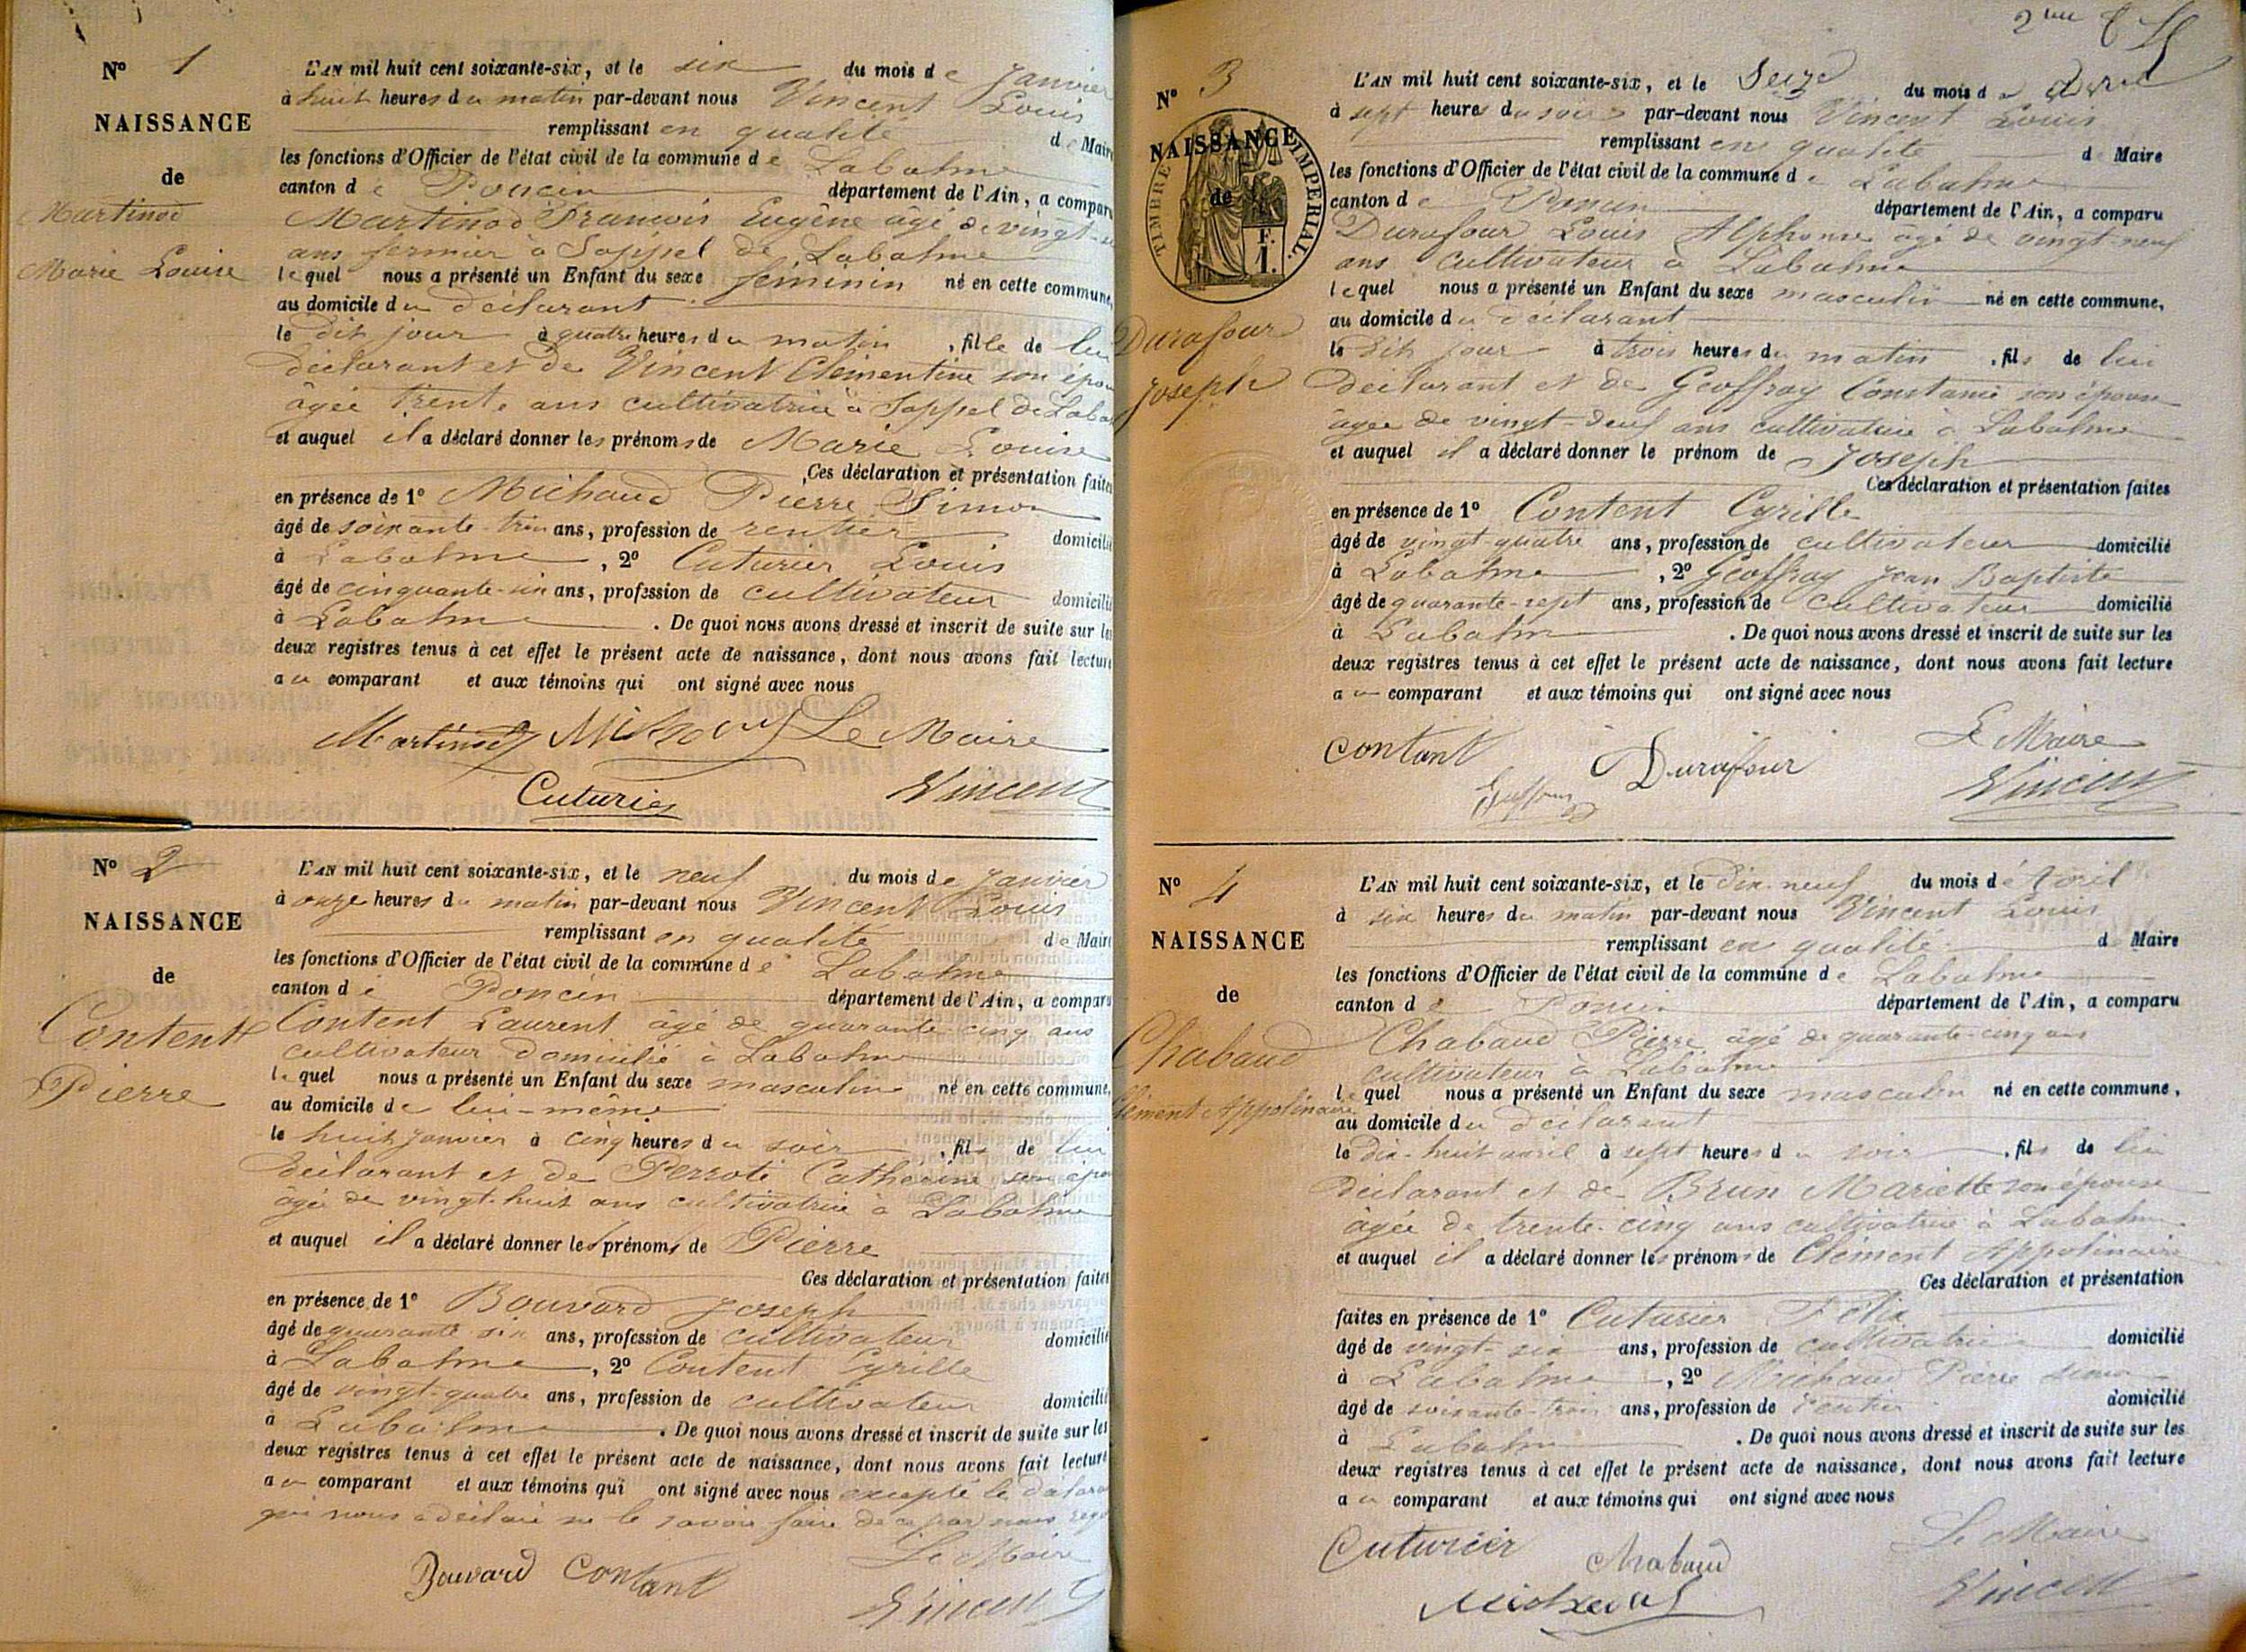 N° 1
NAISSANCE
de
Martinod
Marie Louise
L'AN mil huit cent soixante-six, et le six du mois de Janvier
à huit heures du matin par-devant nous Vincent Louis
remplissant en qualité de Maire
les fonctions d'Officier de l'état civil de la commune de Labalme
canton de Poncin département de l'Ain, a comparu
Martinod Francois Eugène âgé de vingt-
ans fermier à Sappel de Labalme
lequel nous a présenté un Enfant du sexe féminin né en cette commune,
au domicile du déclarant
le dit jour à quatre heures du matin, fille de lui
déclarant et de Vincent Clémentine son épou
âgée trente ans cultivatrice à Sappel de Laba
et auquel il a déclaré donner les prénoms de Marie Louise
Ces déclaration et présentation faites
en présence de 1° Michaud Pierre Simon
âgé de soixante-trois ans, profession de rentier domicilié
à Labalme, 2° Cuturier Louis
âgé de cinquante-six ans, profession de cultivateur domicilié
à Labalme. De quoi nous avons dressé et inscrit de suite sur les
deux registres tenus à cet effet le présent acte de naissance, dont nous avons fait lecture
au comparant et aux témoins qui ont signé avec nous
Martinod Michaud Le Maire
Cuturier Vincent
N° 2
NAISSANCE
de
Content
Pierre
L'AN mil huit cent soixante-six, et le neuf du mois de Janvier
à onze heures du matin par-devant nous Vincent Louis
remplissant en qualité de Maire
les fonctions d'Officier de l'état civil de la commune de Labalme
canton de Poncin département de l'Ain, a comparu
Content Laurent âgé de quarante-cinq ans
cultivateur domicilié à Labalme
lequel nous a présenté un Enfant du sexe masculin né en cette commune,
au domicile de lui-même
le huit janvier à cinq heures du soir, fils de lui
déclarant et de Perroti Catherine son épou
âgée de vingt-huit ans cultivatrice à Labalme
et auquel il a déclaré donner les prénoms de Pierre
Ces déclaration et présentation faites
en présence de 1° Bouvard Joseph
âgé de quarante six ans, profession de cultivateur domicilié
à Labalme, 2° Content Cyrille
âgé de vingt-quatre ans, profession de cultivateur domicilié
à Labalme. De quoi nous avons dressé et inscrit de suite sur les
deux registres tenus à cet effet le présent acte de naissance, dont nous avons fait lecture
au comparant et aux témoins qui ont signé avec nous excepté le déclara
qui nous a déclaré ne le savoir faire de ce par nous
Le Maire
Bouvard Contant Vincent
2me
N° 3
NAISSANCE
de
TIMBRE IMPERIAL
F.
1.
Durafour
Joseph
L'AN mil huit cent soixante-six, et le Seize du mois de Avril
à sept heures du soir par-devant nous Vincent Louis
remplissant en qualité de Maire
les fonctions d'Officier de l'état civil de la commune de Labalme
canton de Poncin département de l'Ain, a comparu
Durafour Louis Alphonse âgé de vingt-neuf
ans cultivateur à Labalme
lequel nous a présenté un Enfant du sexe masculin né en cette commune,
au domicile du déclarant
le dit jour à trois heures du matin, fils de lui
déclarant et de Geoffray Constance son épouse
âgée de vingt-neuf ans cultivatrice à Labalme
et auquel il a déclaré donner le prénom de Joseph
Ces déclaration et présentation faites
en présence de 1° Content Cyrille
âgé de vingt-quatre ans, profession de cultivateur domicilié
à Labalme, 2° Geoffray Jean Baptiste
âgé de quarante-sept ans, profession de cultivateur domicilié
à Labalme. De quoi nous avons dressé et inscrit de suite sur les
deux registres tenus à cet effet le présent acte de naissance, dont nous avons fait lecture
au comparant et aux témoins qui ont signé avec nous
Contant Durafour Le Maire
Vincent
N° 4
NAISSANCE
de
Chabaud
Clément Appolinaire
L'AN mil huit cent soixante-six, et le dix-neuf du mois de Avril
à six heures du matin par-devant nous Vincent Louis
remplissant en qualité de Maire
les fonctions d'Officier de l'état civil de la commune de Labalme
canton de Poncin département de l'Ain, a comparu
Chabaud Pierre âgé de quarante-cinq ans
cultivateur à Labalme
lequel nous a présenté un Enfant du sexe masculin né en cette commune,
au domicile du déclarant
le dix-huit avril à sept heures du soir, fils de lui
déclarant et de Brun Mariette son épouse
âgée de trente-cinq ans cultivatrice à Labalme
et auquel il a déclaré donner les prénoms de Clément Appolinaire
Ces déclaration et présentation
faites en présence de 1° Cuturier Félix
âgé de vingt-six ans, profession de cultivateur domicilié
à Labalme, 2° Michaud Pierre Simon
âgé de soixante-trois ans, profession de rentier domicilié
à Labalme. De quoi nous avons dressé et inscrit de suite sur les
deux registres tenus à cet effet le présent acte de naissance, dont nous avons fait lecture
au comparant et aux témoins qui ont signé avec nous
Cuturier Chabaud Le Maire
Michaud Vincent